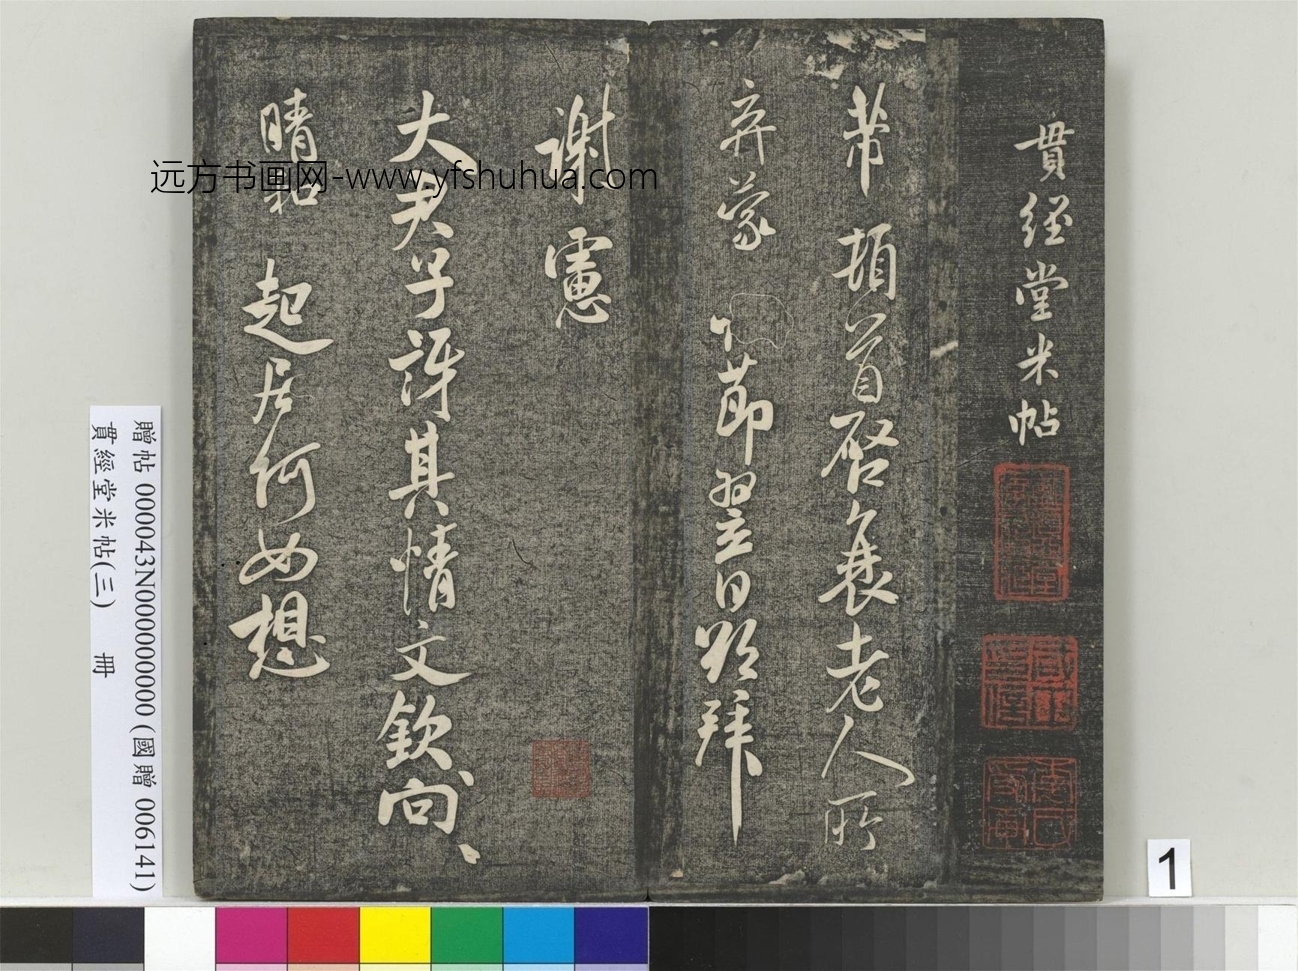 貫經堂米帖
芾頓首啓衰老人所
弃蒙
節翌日躬拜
謝憲
大君子誶其情文欽向、、
晴和 起居何如想
远方书画网-www.yfshuhua.com
贈帖 000043N000000000 (國贈 006141)
貫經堂米帖(三) 冊
1